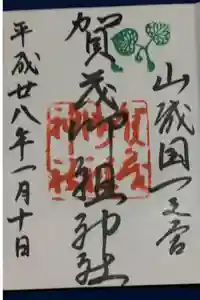 山城国一之宮
賀茂御祖神社
平成廿八年一月十日
賀茂御祖神社